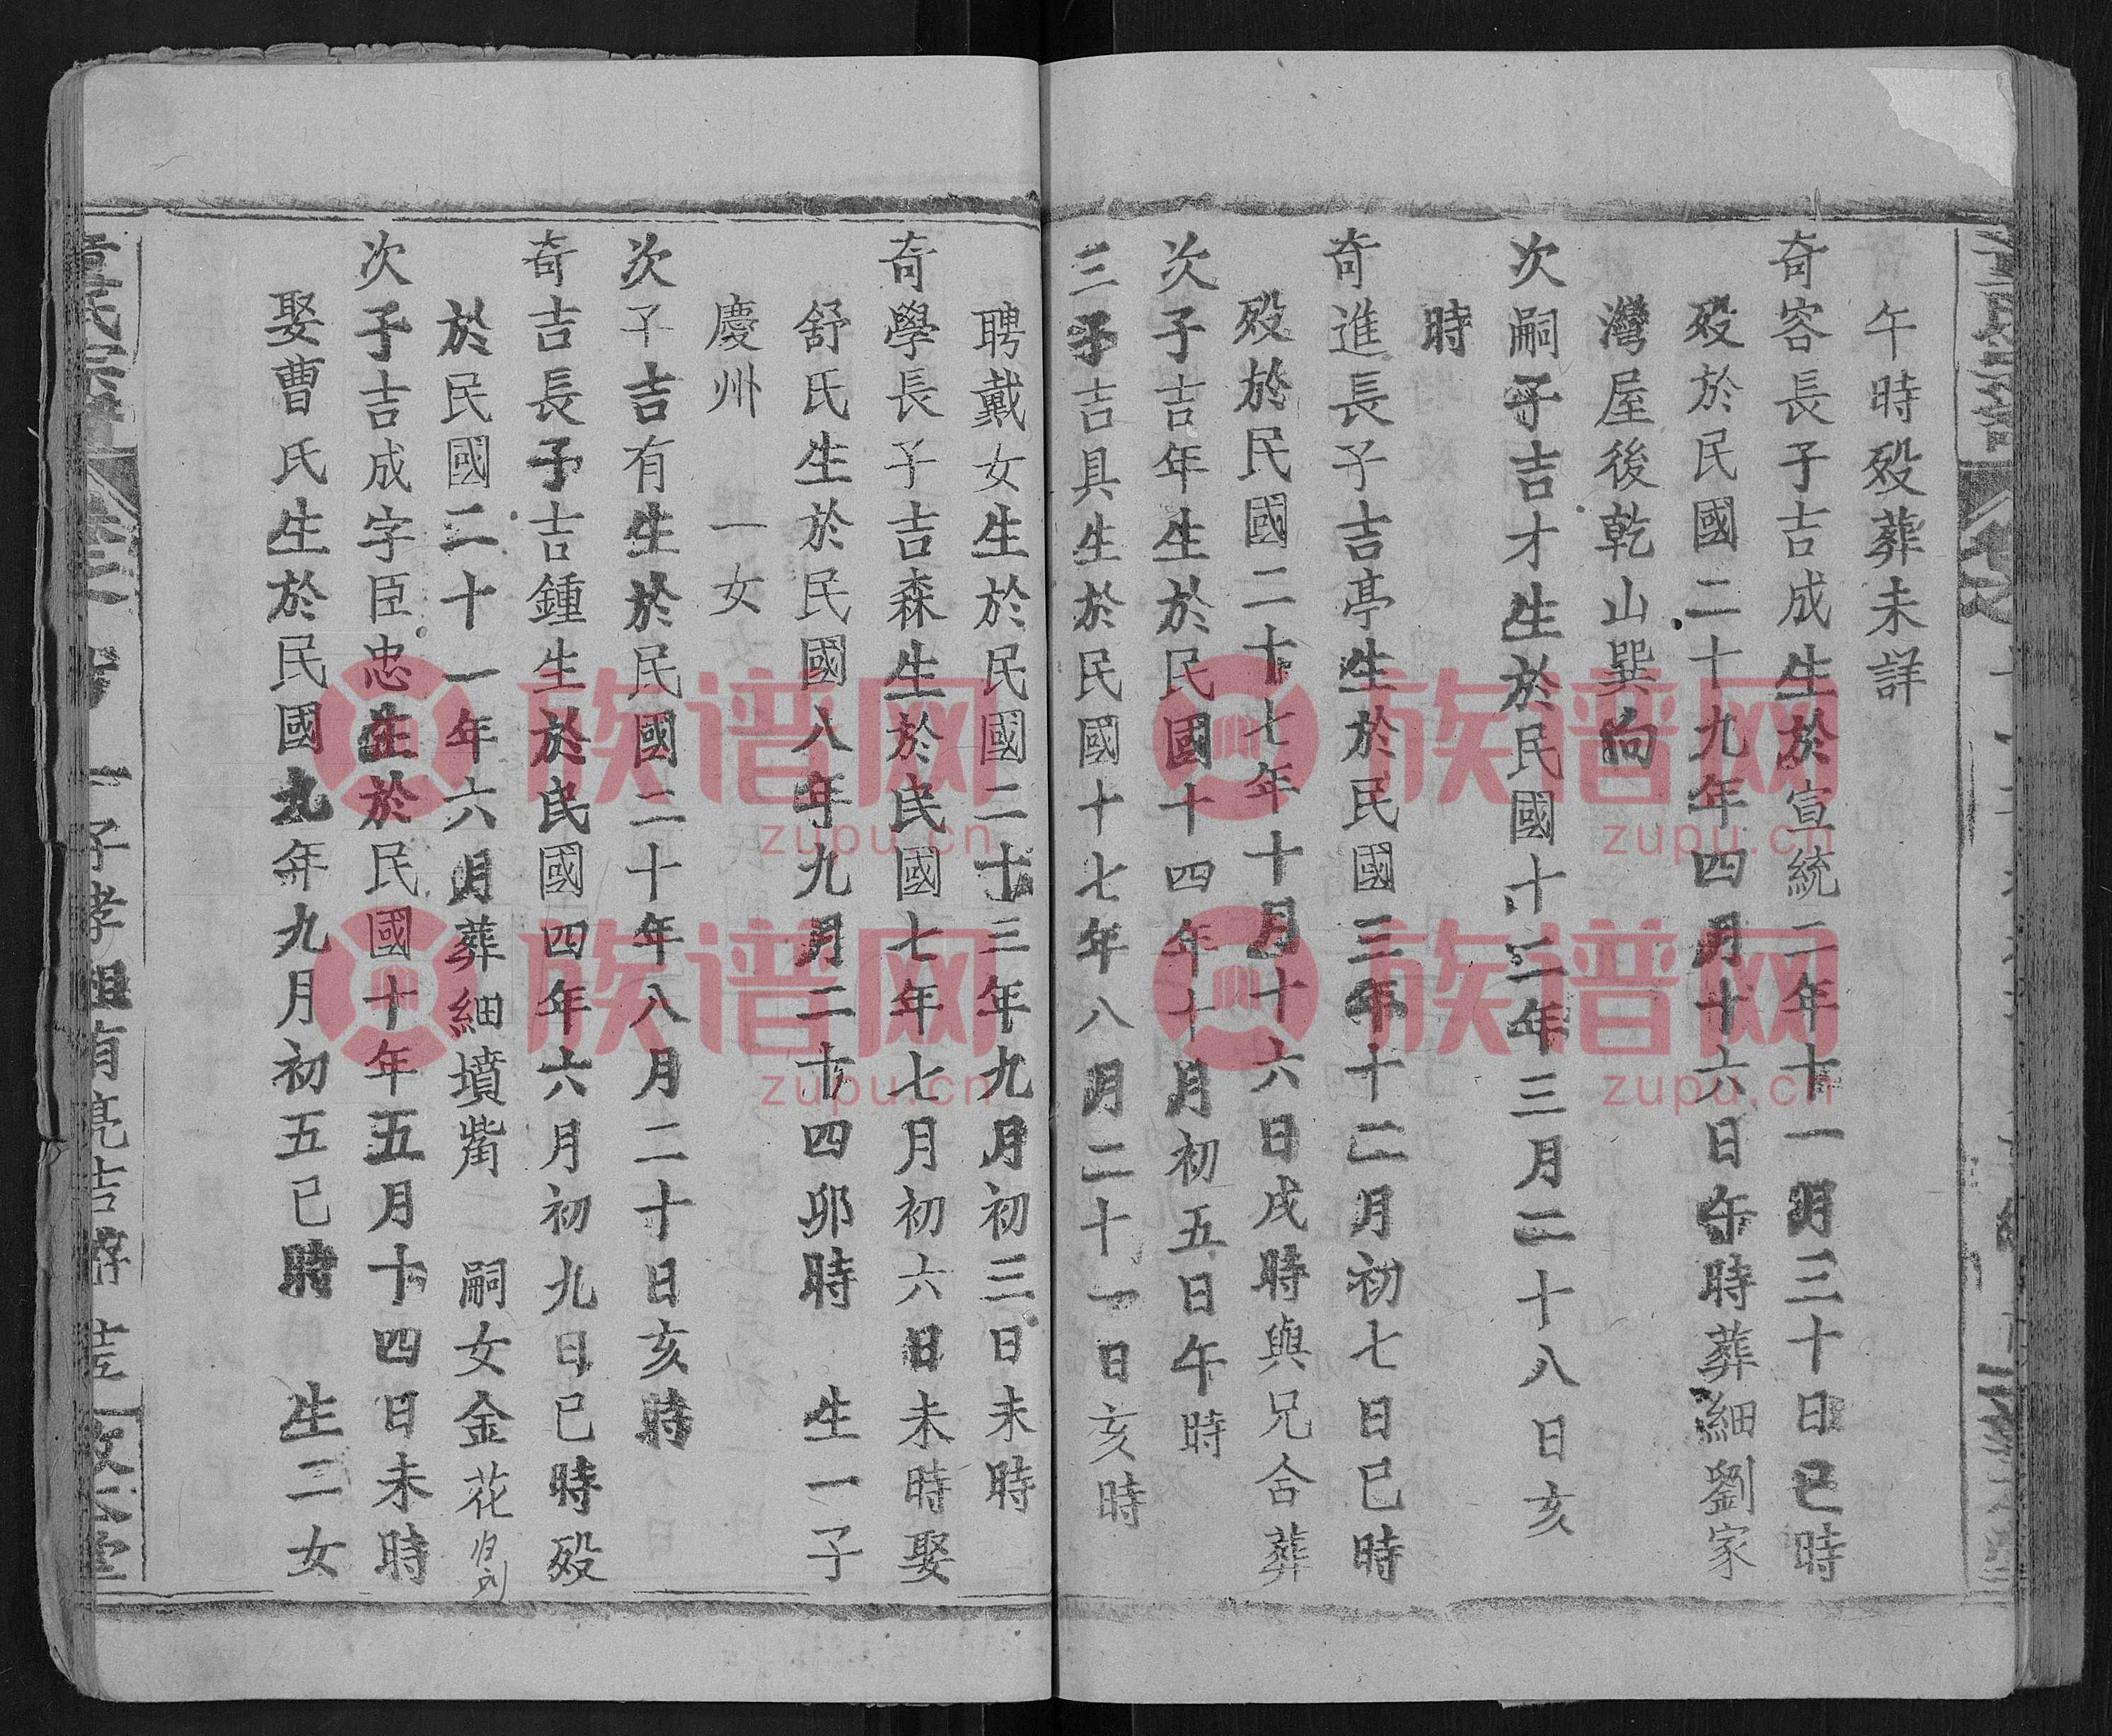 午時殁葬未詳
奇容長子吉成生於宣統二年十一月三十日已時
殁於民國二十九年四月十六日午時葬細劉家
灣屋後乾山巽向
次嗣子吉才生於民國十二年三月二十八日亥
時
奇進長子吉亭生於民國三年十二月初七日已時
殁於民國二十七年十月十六日戌時與兄合葬
次子吉年生於民國十四年十月初五日午時
三子吉具生於民國十七年八月二十一日亥時
聘戴女生於民國二十三年九月初三日未時
奇學長子吉森生於民國七年七月初六日未時娶
舒氏生於民國八年九月二十四卯時 生一子
慶州 一女
次子吉有生於民國二十年八月二十日亥時
奇吉長子吉鍾生於民國四年六月初九日已時殁
於民國二十一年六月葬細墳嘴 嗣女金花
次子吉成字臣忠生於民國十年五月十四日未時
娶曹氏生於民國九年九月初五已時 生二女
族谱网
zupu.cn
族谱网
zupu.cn
族谱网
zupu.cn
族谱网
zupu.cn